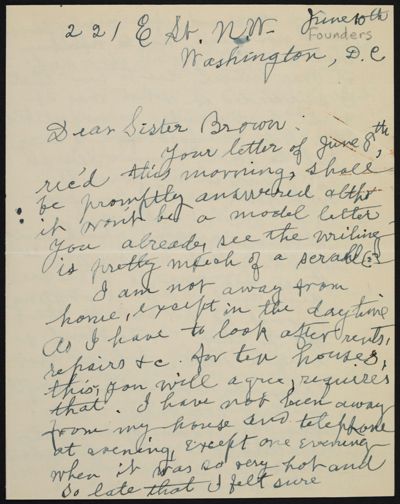 221 E St. N.W. June 10th
Founders
Washington, D.C
Dear Sister Brown:
Your letter of June 8th,
rec'd this morning, shall
be promptly answered altho
it won't be a model letter
You already, see the writing
is pretty much of a scrabble
I am not away from
home, except in the daytime
As I have to look after rents,
repairs &c. for ten houses,
this, you will agree, requires
that. I have not been away
from my house and telephone
at evening, except one evening
when it was so very hot and
so late that I felt sure